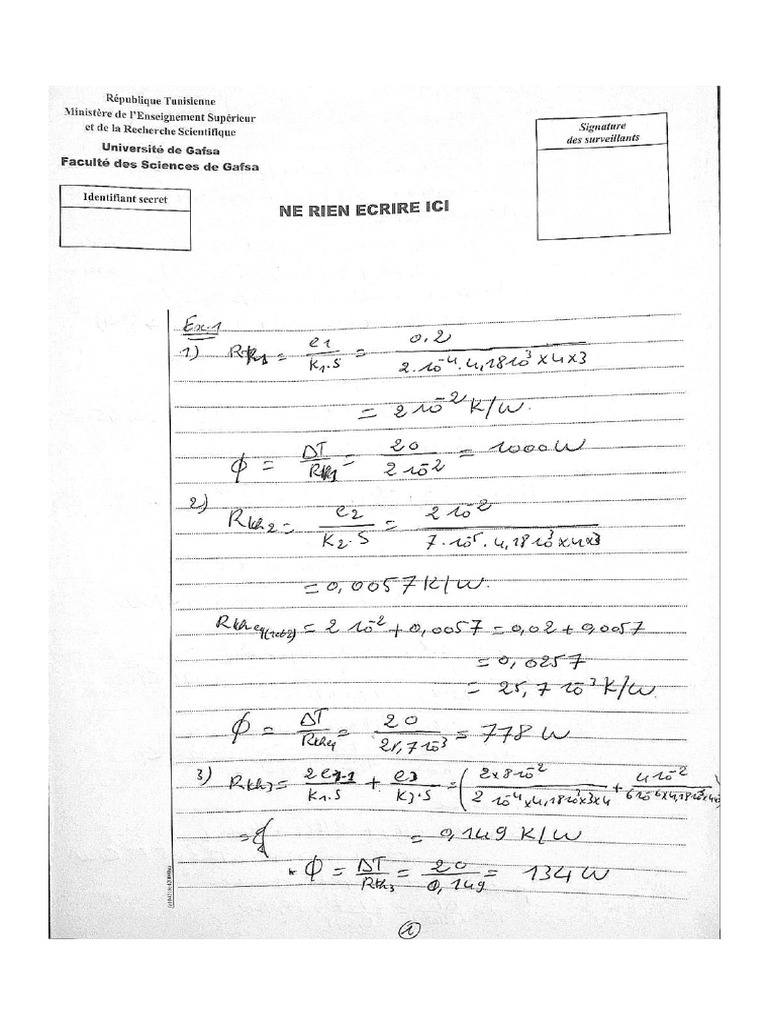 République Tunisienne
Ministère de l'Enseignement Supérieur
et de la Recherche Scientifique
Université de Gafsa
Faculté des Sciences de Gafsa
Signature
des surveillants
Identifiant secret
NE RIEN ECRIRE ICI
Ex.1
1) Rth1 = e1 / K1.S = 0.2 / 2.10^-4.4,18 10^3 x4x3
= 2 10^-2 K/W.
ϕ = ΔT / Rth1 = 20 / 2 10^-2 = 1000W
2) Rth2 = e2 / K2.S = 2 10^-2 / 7.10^-5.4,18 10^3 x4x3
= 0,0057 K/W.
Rth eq(1et2) = 2 10^-2 + 0,0057 = 0,02 + 0,0057
= 0,0257
= 25,7 10^-3 K/W.
ϕ = ΔT / Rtheq = 20 / 25,7 10^-3 = 778 W
3) Rth3 = 2e3-1 / K1.S + e3 / K3.S = ( 2x8 10^-2 / 2 10^-4 x4,18 10^3 x3x4 + 4 10^-2 / 6 10^-6 x4,18 10^3 x4x3
= 0,149 K/W
* ϕ = ΔT / Rth3 = 20 / 0,149 = 134 W
1